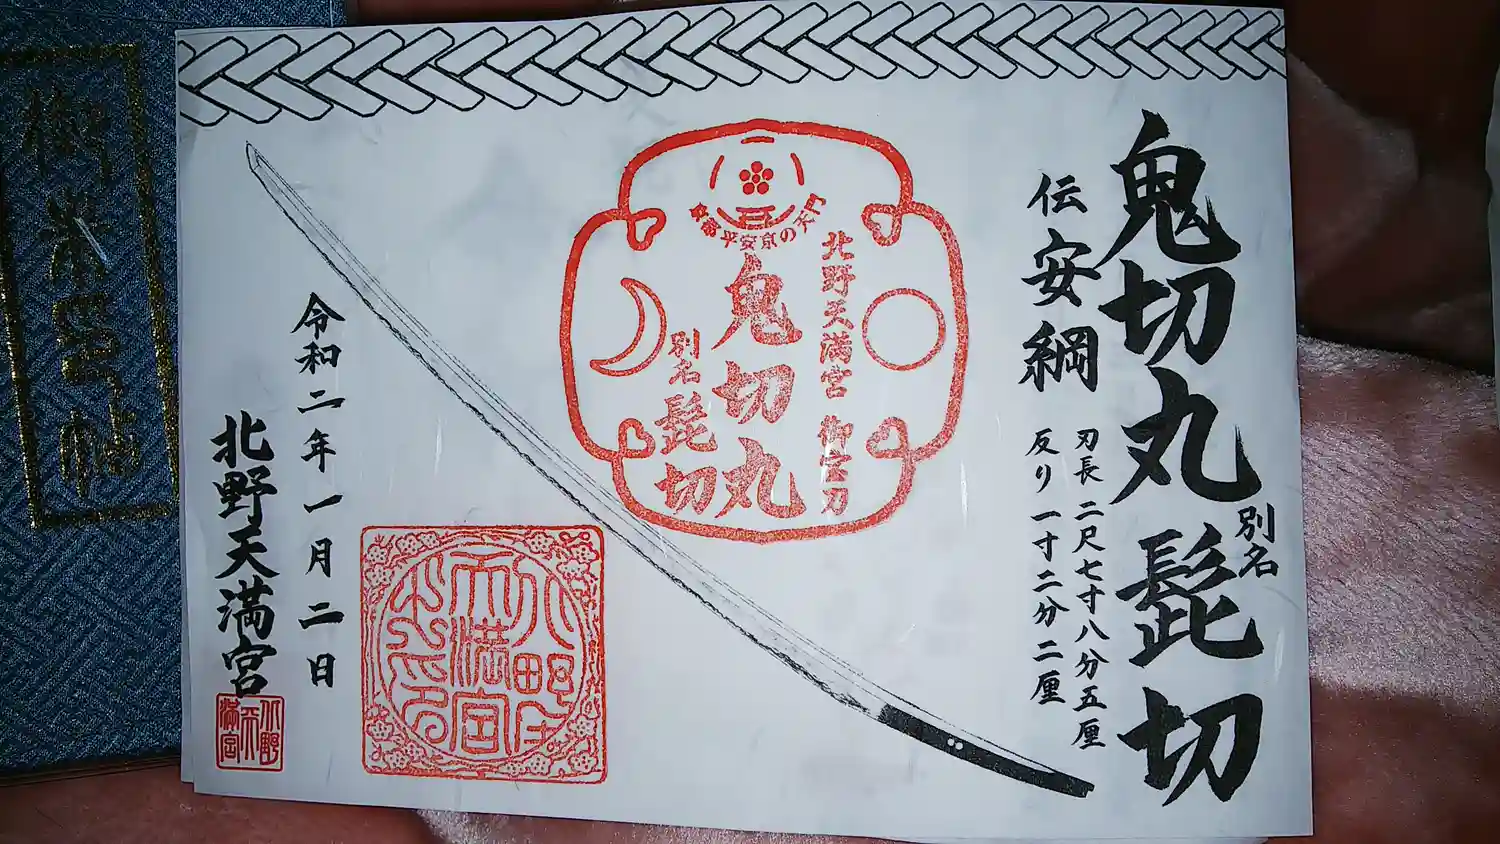 鬼切丸 別名 髭切
伝 安綱
刃長 二尺七寸八分五厘
反り 一寸二分二厘
平安京の天門
北野天満宮 御宝刀
鬼切丸
別名 髭切
令和二年一月二日
北野天満宮
北野天満宮
御朱印帖